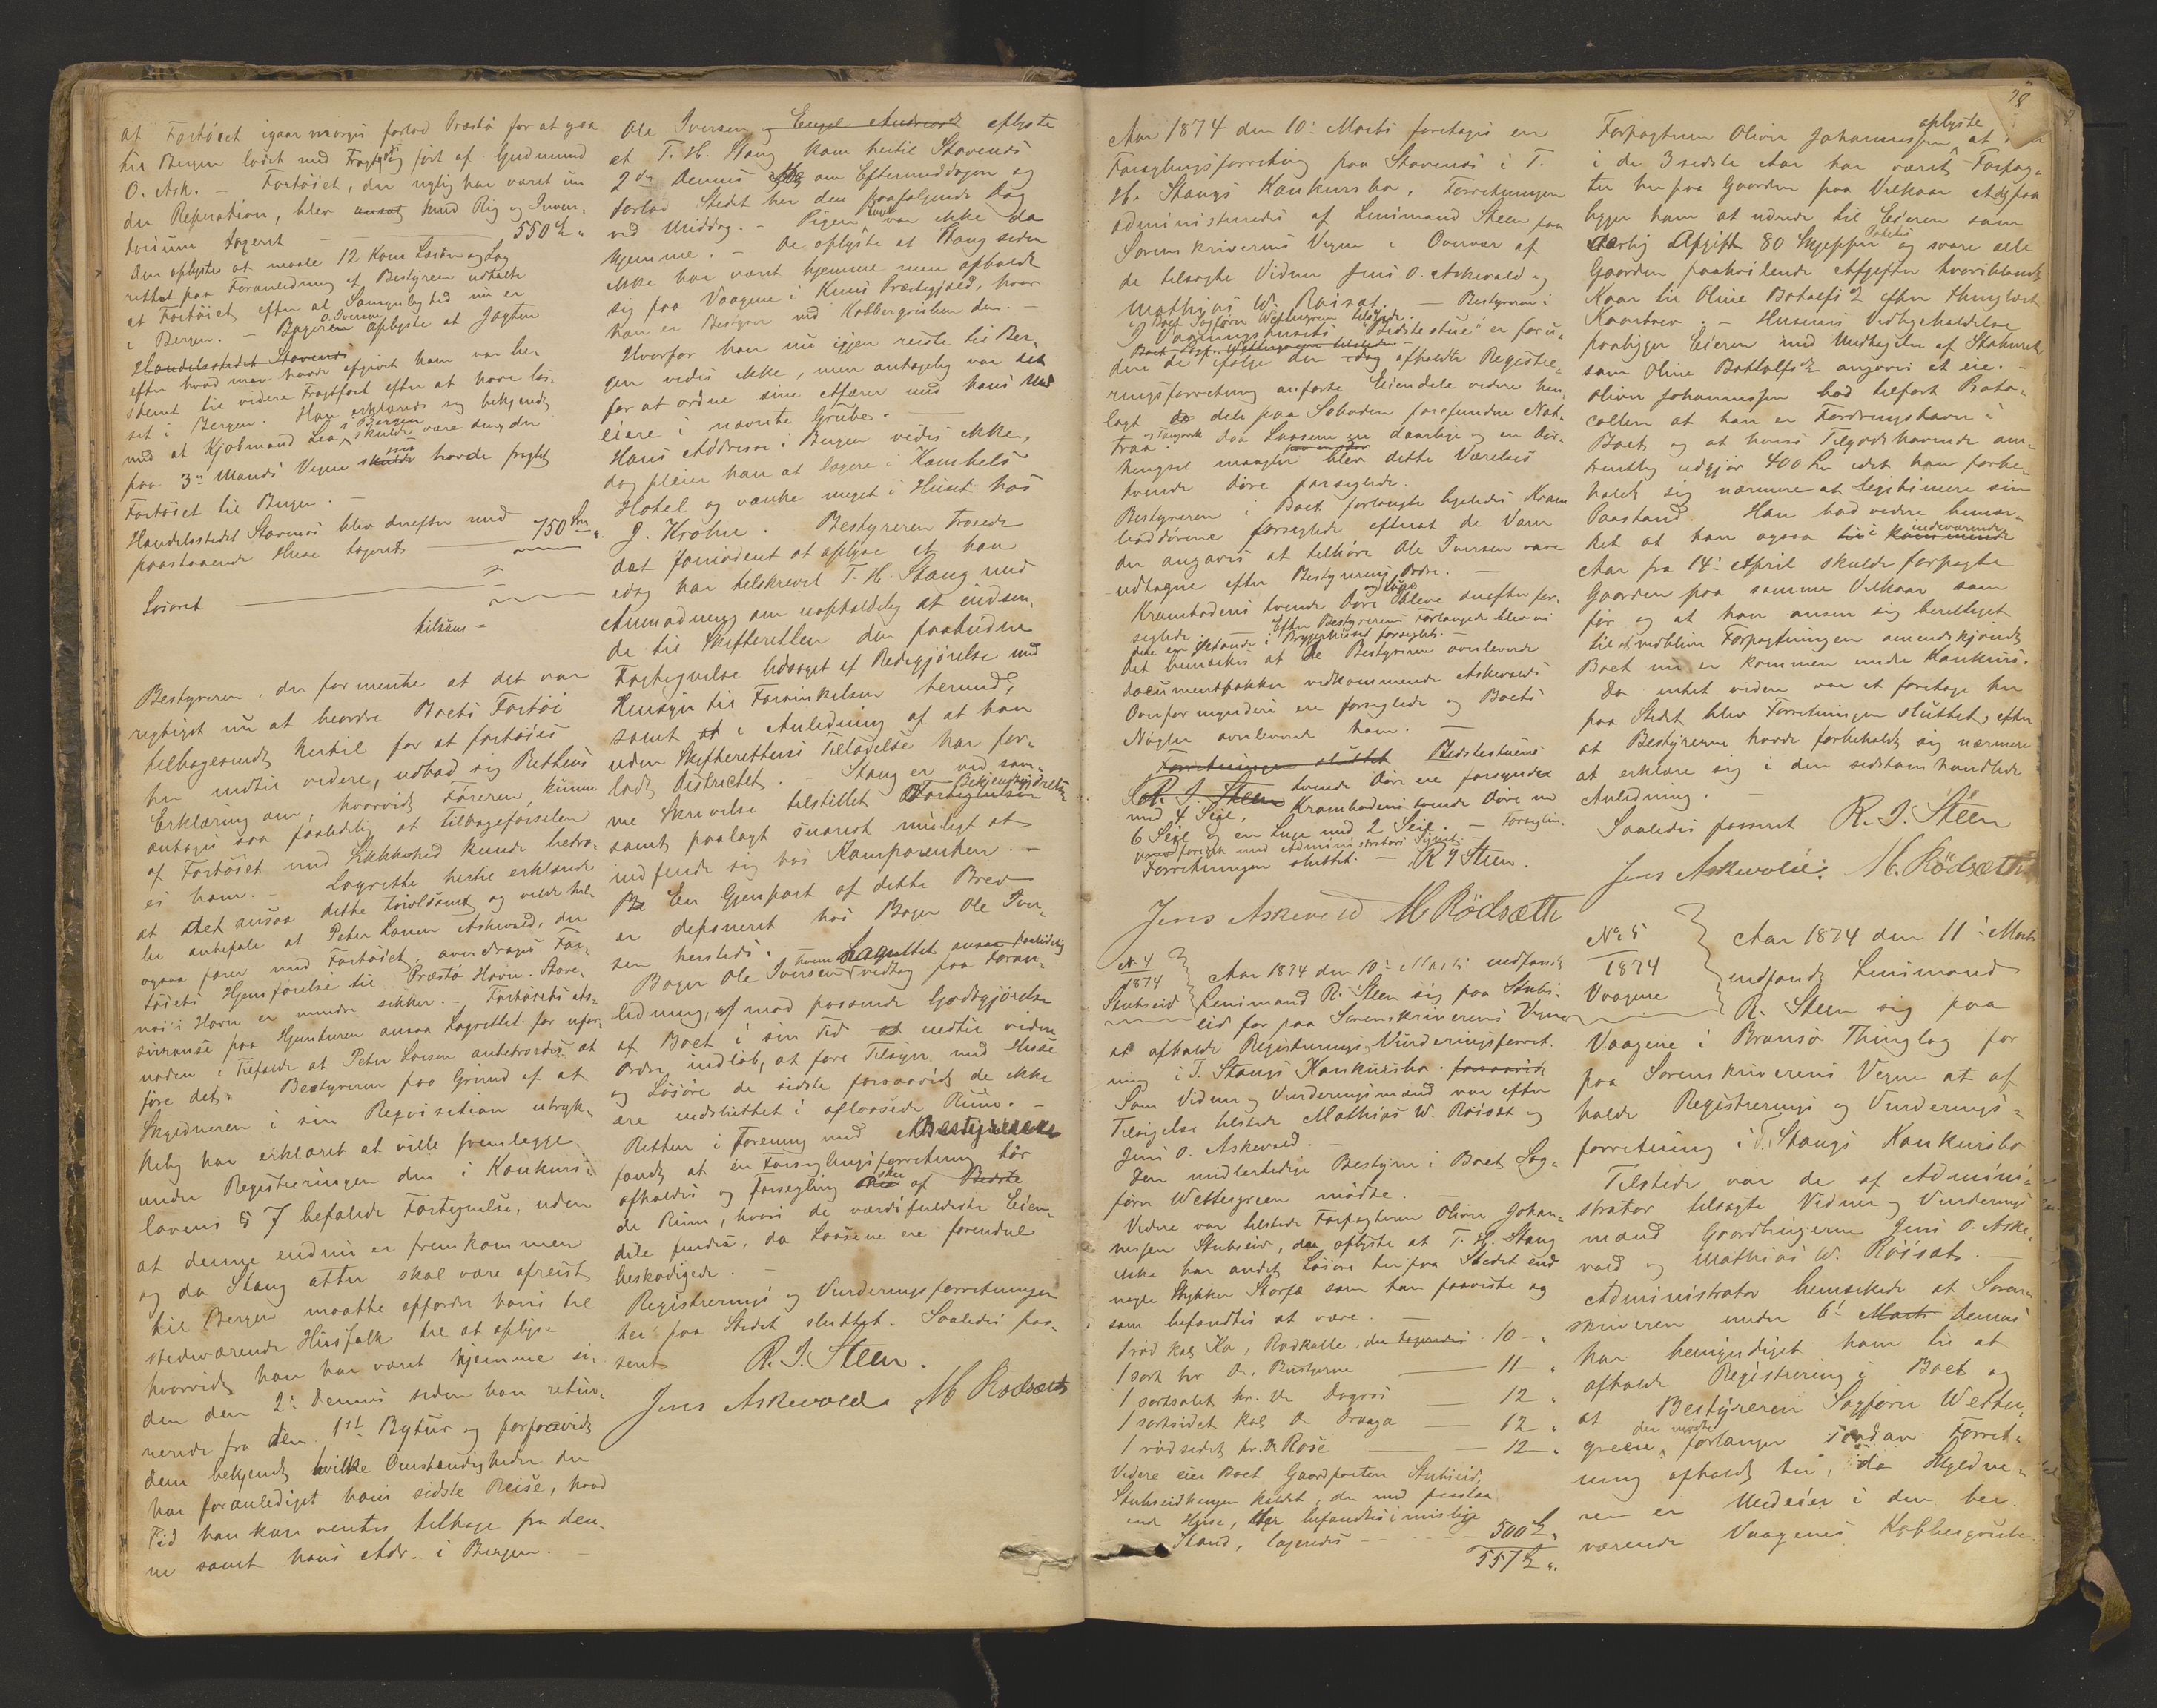 at Fartöiet igaar morges forlod Præstö for at gaa
til Bergen ladet med Fragtgods fört af Gudmund
O. Ask. – Fartöiet, der nylig har været un
der Reperation, blev ansat med Rig og Inven-
torium taxeret 550 Sp "
Den oplystes at maale 12 Kom Læster og Lag
rettet paa Foranledning af Bestyreren udtalte
at Fartöiet efter al Sansynlighed nu er
i Bergen. – Bageren O. Iversen oplyste at Jagten
Handelsstedet Stavenes
efter hvad man havde opgivet ham var be-
stemt til videre Fragtfart efter at have los-
set i Bergen. Han erklærede sig bekjendt
med at Kjöbmand Lea i Bergen skulde være den, der
paa 3die Mands Vegne skulde havde fragtet
Fartöiet til Bergen. –
Handelsstedet Stavenes blev derefter med
paastaaende Huse taxeret 750 Spd "
Lösöret
tilsam =
Bestyreren, der formente at det var
rigtigst nu at beordre Boets Fartöi
tilbagesendt hertil for at fortöies
her indtil videre, udbad sig Rettens
Erklæring om, hvorvidt Föreren kunne
antages saa paalidelig at Tilbageförselen
af Fartöiet med Sikkerhed kunde betro-
es ham. – Lagrette hertil erklærede
at det ansaa dette tvivlsomt og vilde hel-
ler anbefale at Peter Larsen Askevold, der
ogsaa farer med Fartöiet, overdrages Far-
töiets Hjemförelse til Præstö Havn. Stave-
næs Havn er mindre sikker. – Fartöiets As-
surranse paa Hjemturen ansaa Lagrettet for ufor-
nöden i Tilfælde at Peter Larsen anbetroedes at
före det. Bestyreren paa Grund af at
Skyldneren i sin Reqvisition utryk-
kelig har erklæret at ville fremlegge
under Registreringen den i Konkurs-
lovens § 7 befalede Fortegnelse, uden
at denne endnu er fremkommen
og da Stang atter skal være afreist
til Bergen maatte opfordre hans til
stedeværende Husfolk til at oplyse
hvorvidt han har været hjemme si-
den den 2den Dennes siden han retur-
nerede fra den 1ste Bytur og forsaavidt
dem bekjendt hvilke Omstændigheder der
har foranlediget hans sidste Reise, hvad
Tid han kan ventes tilbage fra den-
ne samt hans Adr. i Bergen. –
Ole Iversen og Engel Andreasd oplyste
at T. H. Stang kom hertil Stavenes
2den Dennes om Eftermiddagen og
forlod Stedet her den paafölgende Dag
ved Middag. – Pigen var ikke da
hjemme. – De oplyste at Stang siden
ikke har været hjemme men opholdt
sig paa Vaagene i Kinns Præstegjeld, hvor
han er Bestyrer ved Kobbergruben der. –
Hvorfor han nu igjen reiste til Ber-
gen vides ikke, men antagelig var det
for at ordne sine Affærer med hans Med
eiere i nævnte Grube. –
Hans Addresse i Bergen vides ikke,
dog pleier han at logere i Hambels
Hotel og vanke meget i Huset hos
J. Krohn. Bestyreren troede
det fornödent at oplyse at han
idag har tilskrevet T. H. Stang med
Anmodning om uopholdelig at indsen-
de til Skifteretten den paabudne
Fortegnelse ledsaget af Redegjörelse med
Hensyn til Forsinkelsen hermed,
samt at i Anledning af at han
uden Skifterettens Tilladelse har for-
ladt Distriktet. – Stang er ved sam-
me Skrivelse tilstillet Bekjendtgjörelsen
samt paalagt snarest muligt at
indfinde sig hos Komparenten. –
Be En Gjenpart af dette Brev
er deponeret hos Bager Ole Iver-
sen hersteds.
Bager Ole Iversen hvem Lagrettet ansaa paalidelig
vedtog paa Foran-
ledning, af mod passende Godtgjörelse
af Boet i sin Tid at indtil videre
Ordre indlöb, at före Tilsyn med Huse
og Lösöre de sidste forsaavidt de ikke
ere indsluttet i aflaasede Rum. –
Retten i Forening med Bestyreren
fandt at en Forseglingsforretning bör
afholdes og forsegling skee af Bedste
de Rum, hvori de værdifuldeste Eien-
dele findes, da Laasene ere forendel
beskadigede. –
Registrerings og Vurderingsforretningen
her paa Stedet sluttet. Saaledes pas-
seret R. I. Steen.
Jens Askevold M Rodsæth
78
Aar 1874 den 10de Marts foretoges en
Forseglingsforretning paa Stavenes i T.
H. Stangs Konkursbo. Forretningen
administreredes af Lensmand Steen paa
Sorenskriverens Vegne i Overvær af
de tilsagte Vidner Jens O. Askevold og
Mathias W. Röiset. – Bestyreren i
Boet Sagförer Wettergreen tilstede.
I Vaaningshusets "Bedstestue" er foru-
Boet Sagf. Wettergreen tilstede –
den de ifölge den idag afholdte Registre-
ringsforretning anförte Eiendele videre hen-
lagt de dele paa Saboden forefundne Not-
traa og Tougværk. Da Laasene ere daarlige og en Dör-
hengsel mangler blev dette Værelses
tvende Döre forseglede.
Bestyreren i Boet forlangte ligeledes Kram
boddörene forseglede efterat de Varer
der angaves at tilhöre Ole Iversen vare
udtagne efter Bestyrerens Ordre. –
Krambodens tvende Döre og Luge bleve derefter for-
seglede. Efter Bestyrerens Forlangende blev vi
dere en Petande i Bryggehuset forseglet. –
Det bemærkes at de Bestyreren overleverede
Documentpakker vedkommende Askevolds
Overformynderi ere forseglede og Boets
Nögler overleveret ham. –
Forretningen sluttet Bedstestuens
R. I. Steen tvende Döre ere forsynede
med 4 Seigl, Krambodens tvende Döre med
6 Seigl og en Luge med 2 Seigl. – Forseglin-
gen foregik med Administrators Signet. –
Forretningen sluttet. – R I Steen.
Jens Askevold M Rödsætt
No 4
1874
Stubseid
Aar 1874 den 10de Marts indfandt
Lensmand R. Steen sig paa Stubs-
eid for paa Sorenskriverens Vegne
at afholde Registrerings, Vurderingsforret-
ning i T. Stangs Konkursbo. forsaavidt
Som Vidner og Vurderingsmænd var efter
Tilsigelse tilstede Mathias W. Röiset og
Jens O. Askevold. –
Den midlertidige Bestyrer i Boet Sag-
förer Wettergreen mödte.
Videre var tilstede Forpagteren Oliver Johan-
nessen Stubseid, der oplyste at T. H. Stang
ikke har andet Lösöre her paa Stedet end
nogle Stykker Storfæ som han paaviste og
som befandtes at være. –
1 röd kol Ko, Rödkolle, der taxeredes 10 – "
1 sort hr Do, Rustgeren 11 – "
1 sortsalet hr. Do Dagros 12 "
1 sortsidet kol Do Draga 12 "
1 rödsidet hr. Do Rose 12 – "
Videre eier Boet Gaardparten Stubseid,
Stubseidhaugen kaldet, der med paastaa
ende Huse, der befandtes i mislige
Stand, taxeredes 500 Sp "
557 Sp "
Forpagteren Oliver Johannessen oplyste at han
i de 3 sidste Aar har været Forpag-
ter her paa Gaarden paa Vilkaar at det paa
ligger ham at udrede til Eieren som
aarlig Afgift 80 Skjepper Poteter og svare alle
Gaarden paahvilende Afgifter hvoriblandt
Kaar til Oline Botolfsd efter thinglæst
Kaarbrev. – Husenes Vedligeholdelse
paaligger Eieren med Undtagelse af Staburet
som Oline Bottolfsd angaves at eie. –
Oliver Johannessen bad tilfört Proto-
collen at han er Fordringshaver i
Boet og at hans Tilgodehavende om-
trentlig udgjör 400 Sp idet han forbe-
holdt sig nærmere at legitimere sin
Paastand. Han bad videre bemær-
ket at han ogsaa i indeværende
Aar fra 14de April skulde forpagte
Gaarden paa samme Vilkaar som
för og at han anser sig berettiget
til at vedblive Forpagtningen uanseet
Boet nu er kommen under Konkurs.
Da intet videre var at foretage her
paa Stedet blev Forretningen sluttet, efter
at Bestyreren havde forbeholdt sig nærmere
at erklære sig i den sidstomhandlede
Anledning. –
Saaledes passeret R. I. Steen
Jens Askevold. M. Rödsæth
No 5
1874
Vaagene
Aar 1874 den 11te Marts
indfandt Lensmand
R. Steen sig paa
Vaagene i Bremsö Thinglag for
paa Sorenskriverens Vegne at af
holde Registrerings og Vurderings-
forretning i T. Stangs Konkursbo
Tilstede var de af Admini-
strator tilsagte Vidner og Vurderings
mænd Gaardbrugerne Jens O. Aske-
vold og Mathias W. Röiset. –
Administrator bemærkede at Soren-
skriveren under 6te Marts dennes
har bemyndiget ham til at
afholde Registrering i Boet og
at Bestyreren Sagförer Wetter-
green, der mödte forlanger saadan Forret-
ning afholdt her, da Skyldne-
ren er Medeier i den her
værende Vaagenes Kobbergrube.